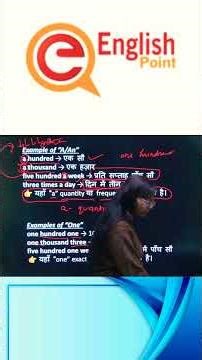 English
Point
Example of "A/An"
a hundred → एक सौ
one hundred
a thousand → एक हज़ार
five hundred a week → प्रति सप्ताह पाँच सौ
three times a day → दिन में तीन
👉 यहाँ "a" quantity या freque है।
a - quanti
Examples of "One"
one hundred →
one thousand three
five hundred one we में पाँच सौ
👉 यहाँ "one" exact है।